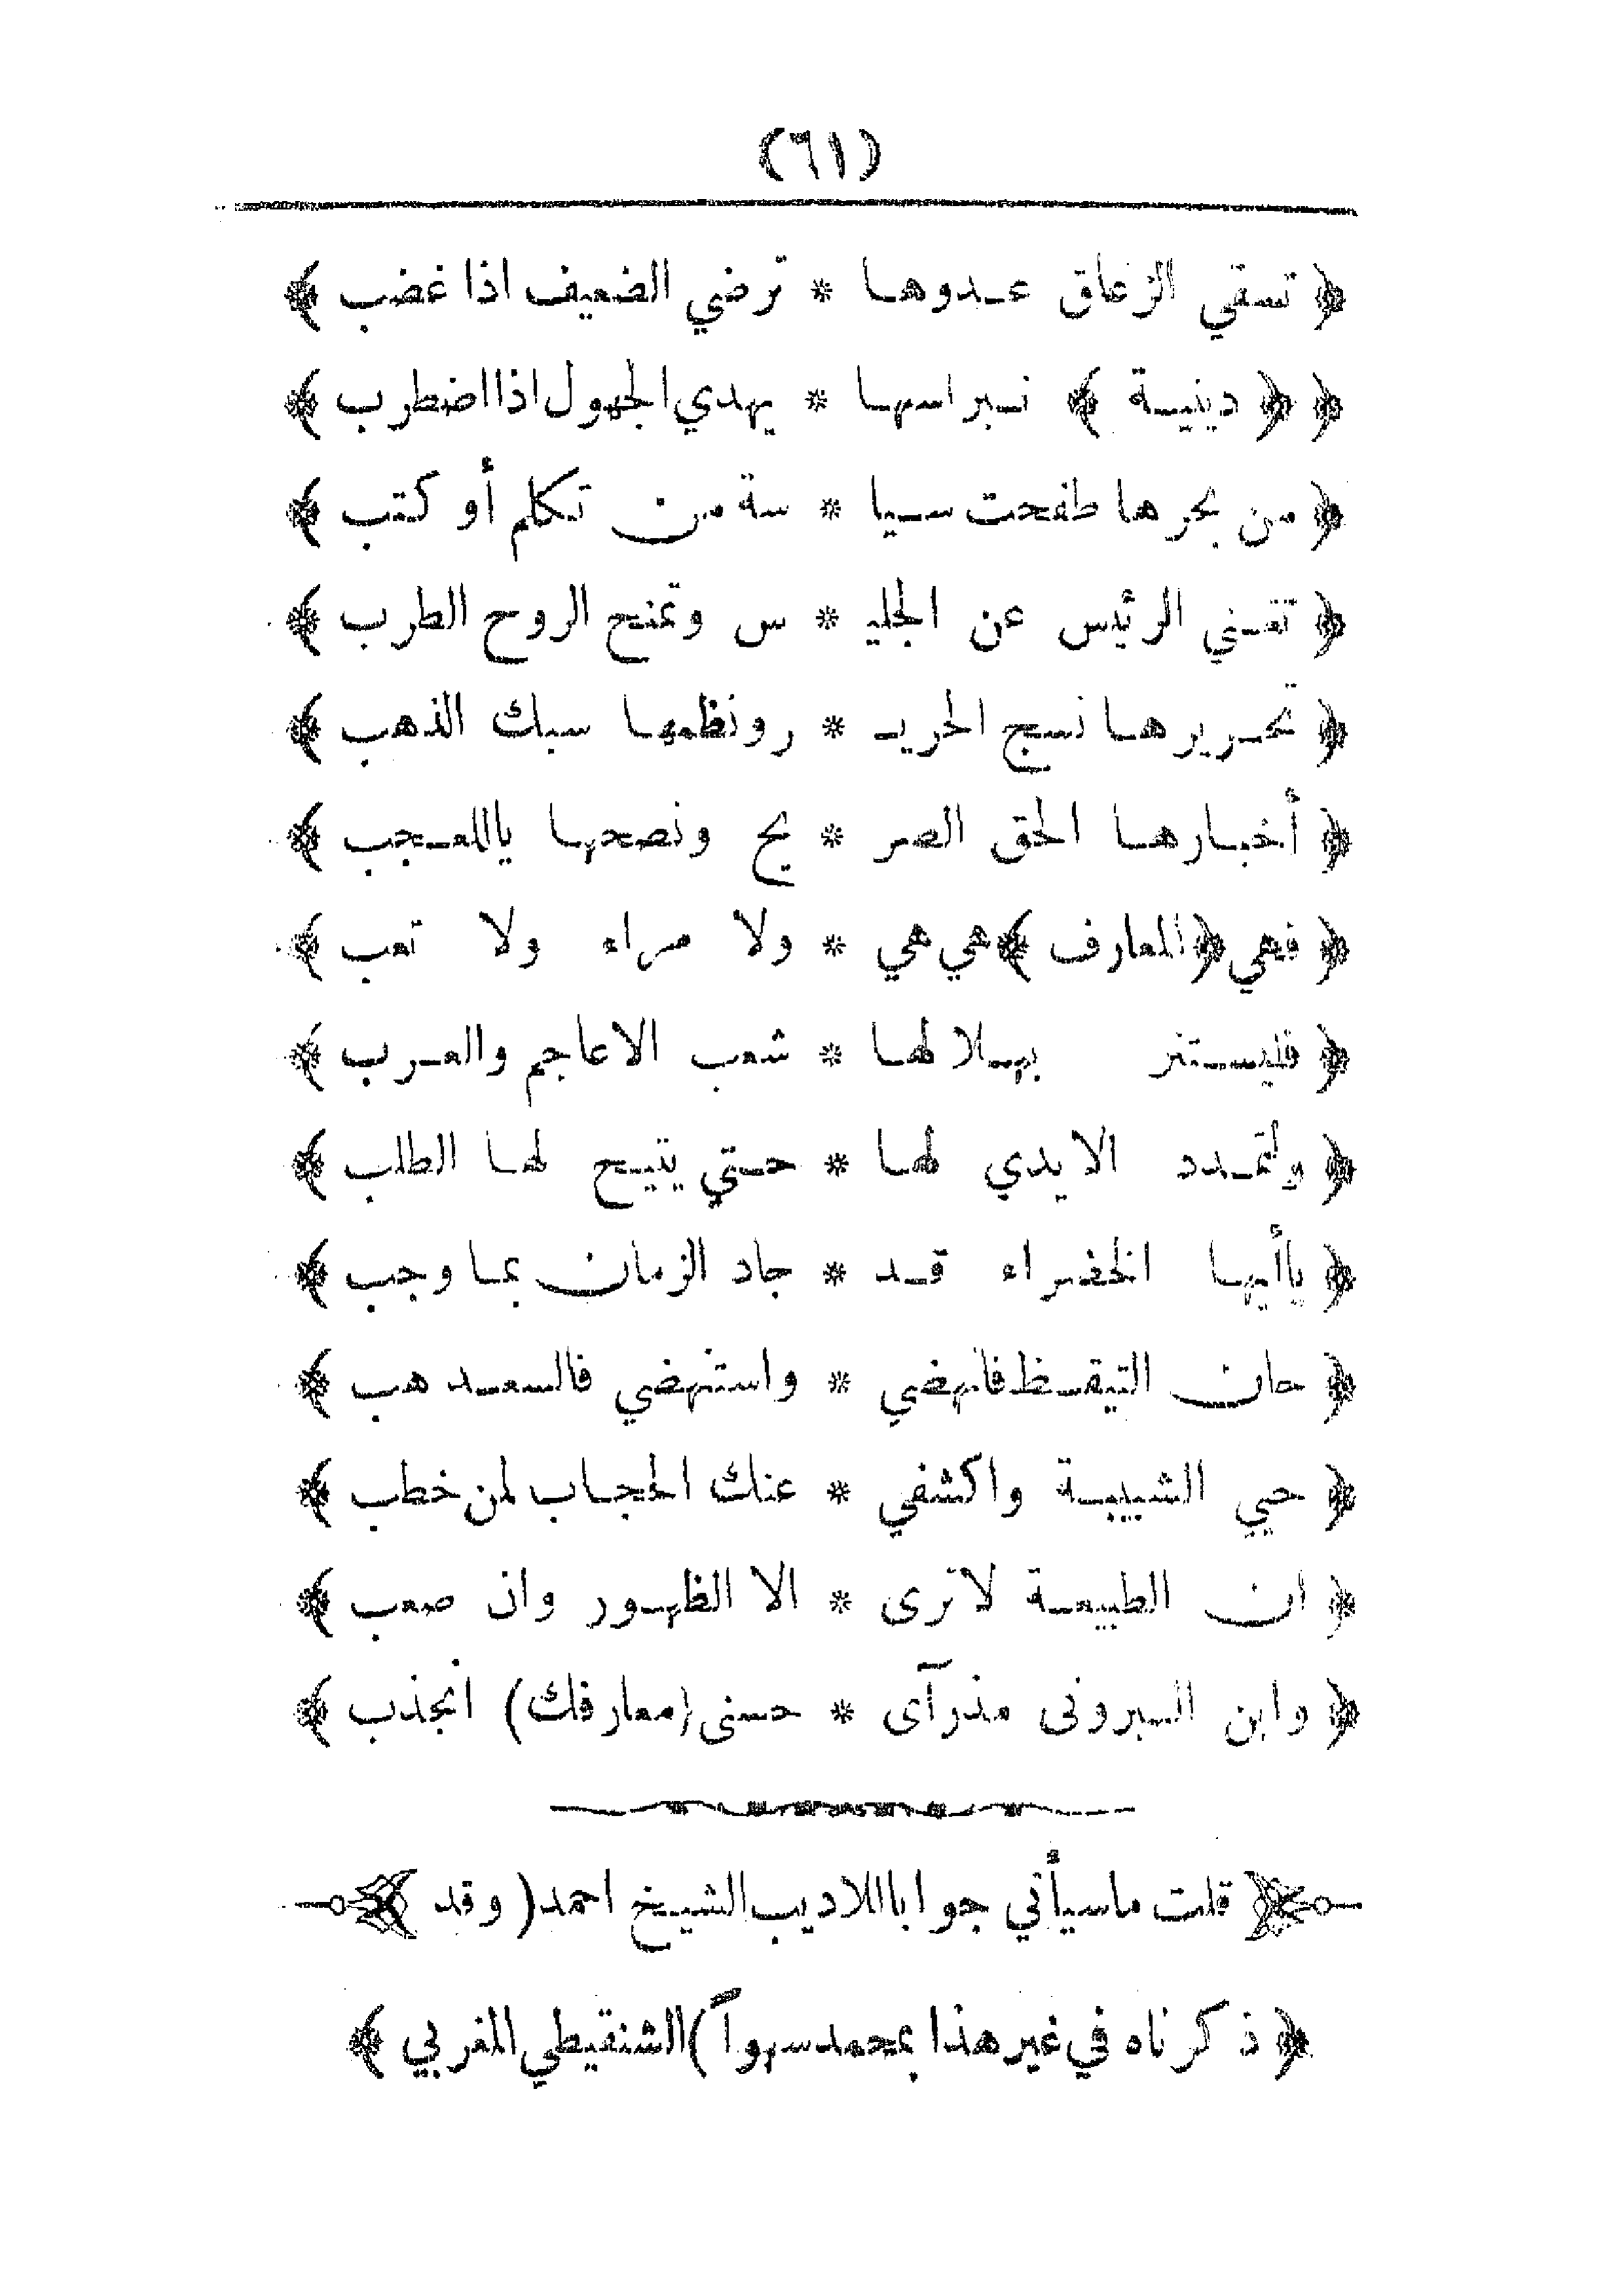 (٦١)
﴿ تسقي الزعاق عدوها * ترضي الضعيف اذا غضب ﴾
﴿ ﴿ دينية ﴾ نبراسها * يهدي الجهول اذا اضطرب ﴾
﴿ من بحرها طفحت سيا * سة من تكلم أو كتب ﴾
﴿ تغني الرئيس عن الجليـ * س وتمنح الروح الطرب ﴾
﴿ تحريرها نسج الحريـ * ر ونظمها سبك الذهب ﴾
﴿ أخبارها الحق الصر * يح ونصحها ياللعجب ﴾
﴿ فهي ﴿ المعارف ﴾ هي هي * ولا مراء ولا تعب ﴾
﴿ فليستنر بهلالها * شعب الاعاجم والعرب ﴾
﴿ ولتمدد الايدي لها * حتي يتيح لها الطلب ﴾
﴿ ياأيها الخضراء قد * جاد الزمان بما وجب ﴾
﴿ حان التيقظ فانهضي * واستنهضي فالسعد هب ﴾
﴿ حيي الشبيبة واكشفي * عنك الحجاب لمن خطب ﴾
﴿ ان الطبيعة لا ترى * الا الظهور وان صعب ﴾
﴿ وابن البرونى مذ رآى * حسنى (معارفك) انجذب ﴾
﴿ قلت ماسيأتي جوابا اللاديب الشيخ احمد ( وقد ﴾
﴿ ذكرناه في غير هذا بمحمد سهواً ) الشنقيطي المغربي ﴾